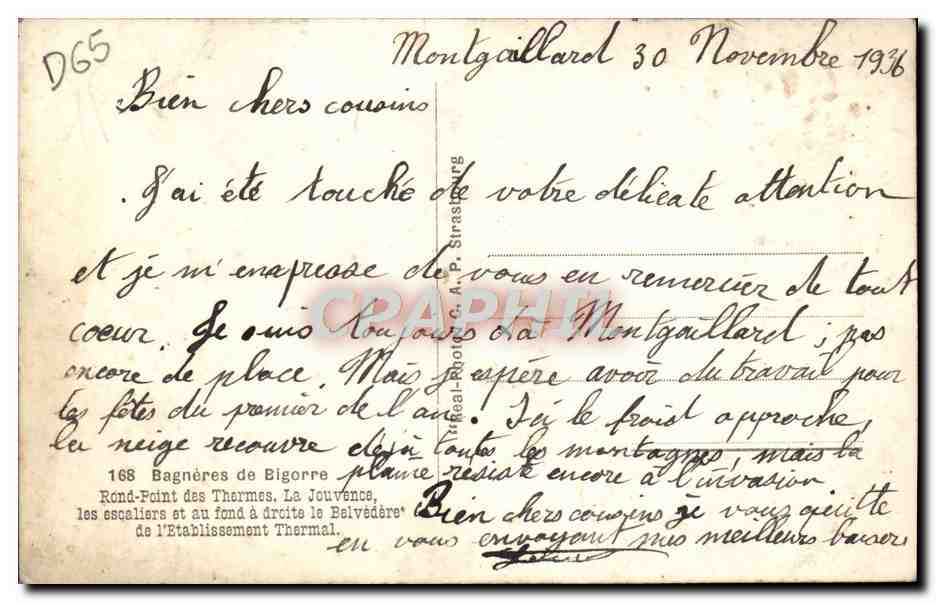 D65
Montgaillard 30 Novembre 1936
Bien chers cousins
J'ai été touché de votre délicate attention
et je m'enapresse de vous en remercier de tout
coeur. Je suis toujours à Montgaillard ; pas
encore de place. Mais j'espère avoir du travail pour
les fêtes du premier de l'an. Ici le froid approche,
la neige recouvre déjà toutes les montagnes, mais la
plaine résiste encore à l'invasion
Bien chers cousins je vous quitte
en vous envoyant mes meilleurs baisers
"Real-Photo" C. A. P. Strasbourg
CRAPHIL
168 Bagnères de Bigorre
Rond-Point des Thermes, La Jouvence,
les escaliers et au fond à droite le Belvédère
de l'Etablissement Thermal.